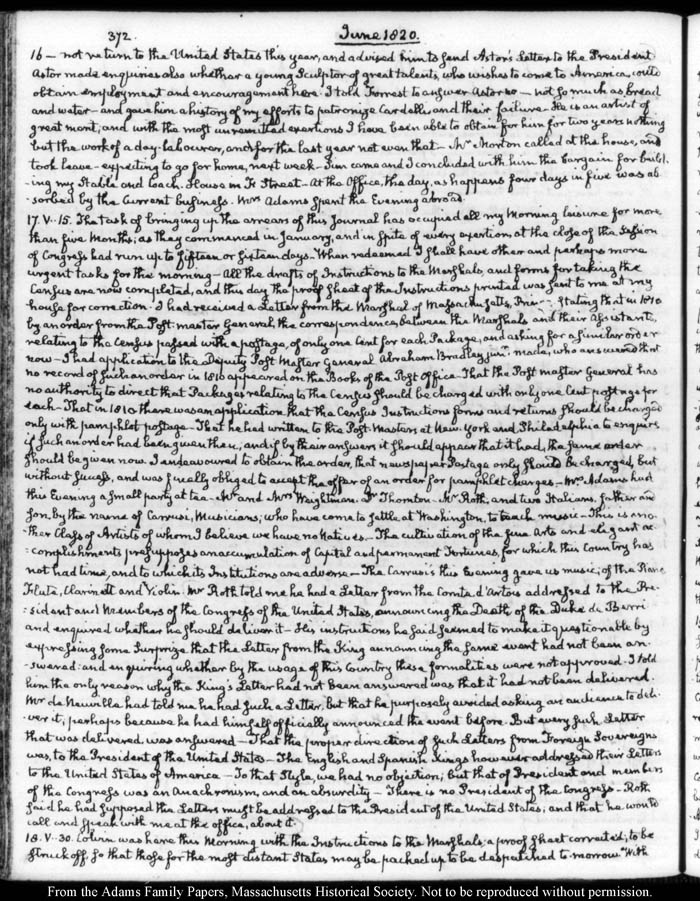 372.
June 1820.
16 — not return to the United States this year, and advised him to send Astor's Letter to the President
Astor made enquiries also whether a young Sculptor of great talents, who wishes to come to America, could
obtain employment and encouragement here. I told Forrest to answer Astor no — not so much as bread
and water — and gave him a history of my efforts to patronize Cardelli, and their failure. He is an artist of
great merit, and with the most unremitted exertions I have been able to obtain for him for two years nothing
but the work of a day-labourer, and for the last year not even that — Mr Morton called at the house, and
took leave — expecting to go for home, next week — Sim came and I concluded with him the bargain for build-
-ing my Stable and Coach-House in F Street — At the Office, the day, as happens four days in five was ab-
-sorbed by the Current business. Mrs Adams spent the Evening abroad.
17. V. 15. The task of bringing up the arrears of this Journal has occupied all my Morning leisure for more
than five Months; as they commenced in January, and in spite of every exertion at the close of the Session
of Congress had run up to fifteen or sixteen days — When redeemed I shall have other and perhaps more
urgent tasks for the morning — All the drafts of Instructions to the Marshals, and forms for taking the
Census are now completed, and this day the proof sheet of the Instructions printed was sent to me at my
house for correction. I had received a Letter from the Marshal of Massachusetts, Prince stating that in 1810
by an order from the Post-master General, the correspondence between the Marshals and their Assistants,
relating to the Census passed with a postage, of only one Cent for each Package, and asking for a similar order
now — I had application to the Deputy Post Master General Abraham Bradley junr. made, who answered that
no record of such an order in 1810 appeared on the Books of the Post Office — That the Post master General has
no authority to direct that Packages relating to the Census should be charged with only one Cent postage for
each — That in 1810 there was an application that the Census Instructions forms and returns should be charged
only with pamphlet postage — That he had written to the Post-Masters at New-York and Philadelphia to enquire
if such an order had been given then, and if by their answers it should appear that it had, the same order
should be given now. I endeavoured to obtain the order, that newspaper Postage only should be charged, but
without success, and was finally obliged to accept the offer of an order for pamphlet charges — Mrs Adams had
this Evening a small party at tea — Mr and Mrs Weightman. Dr Thornton — Mr Roth, and two Italians, father and
son, by the name of Carrusi, Musicians; who have come to settle at Washington, to teach music — This is ano-
ther Class of Artists of whom I believe we have no Natives — The cultivation of the fine Arts and elegant ac-
-complishments presupposes an accumulation of Capital and permanent Fortunes, for which this Country has
not had time, and to which its Institutions are adverse — The Carrusi's this Evening gave us music; of the Piano
Flute, Clarinett and Violin. Mr Roth told me he had a Letter from the Comte d'Artois addressed to the Pre-
:sident and Members of the Congress of the United States, announcing the Death, of the Duke de Berri
and enquired whether he should deliver it — His instructions he said seemed to make it questionable by
expressing some Surprize that the Letter from the King announcing the same event had not been an-
:swered: and enquiring whether by the usage of this Country these formalities were not approved. I told
him the only reason why the King's Letter had not been answered was that it had not been delivered.
Mr de Neuville had told me he had such a Letter, but that he purposely avoided asking an audience to deli-
ver it; perhaps because he had himself officially announced the event before. But every such Letter
that was delivered, was answered — That the proper direction of such Letters from Foreign Sovereigns
was, to the President of the United States — The English and Spanish Kings however addressed their Letters
to the United States of America — To that Style, we had no objection; but that of President and members
of the Congress was an Anachronism, and an absurdity — There is no President of the Congress — Roth
said he had supposed the Letters must be addressed to the President of the United States; and that he would
call and speak with me at the office, about it.
18. V. 30. Colvin was here this Morning with the Instructions to the Marshals; a proof sheet corrected; to be
struck off, so that those for the most distant States may be packed up to be despatched to-morrow. With
From the Adams Family Papers, Massachusetts Historical Society. Not to be reproduced without permission.